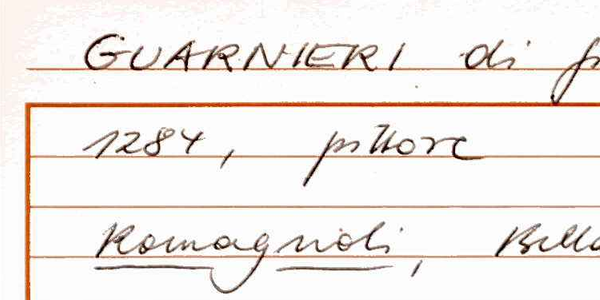 GUARNIERI di
1284, pittore
Romagnoli,